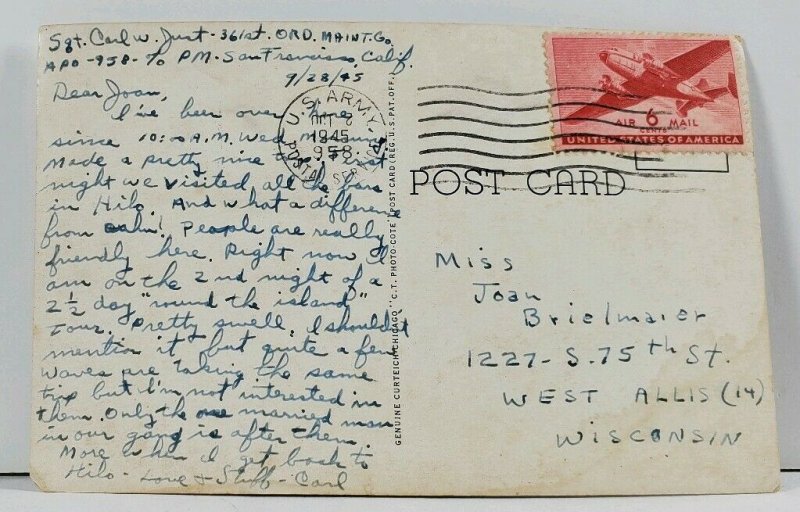 Sgt. Carl W. Just - 361st. ORD. MAINT. Co
APO - 958 - % PM. San Francisco, Calif.
9/28/45
Dear Joan,
I've been over here
since 10:00 A.M. Wed. morning.
Made a pretty nice First
night we visited all the bars
in Hilo. And what a difference
from Oahu! People are really
friendly here. Right now I
am on the 2nd night of a
2½ day "round the island"
tour. Pretty swell, I shouldn't
mention it but quite a few
Waves are taking the same
trip but I'm not interested in
them. Only the one married man
in our gang is after them.
More when I get back to
Hilo - Love & Stuff - Carl
U.S. ARMY
1945
958
POSTAL SER
AIR 6 MAIL
CENTS
UNITED STATES OF AMERICA
POST CARD
GENUINE CURTEICH-CHICAGO "C.T. PHOTO-COTE" POST CARD (REG. U.S. PAT. OFF.)
Miss
Joan
Brielmaier
1227 - S. 75th St.
WEST ALLIS (14)
WISCONSIN